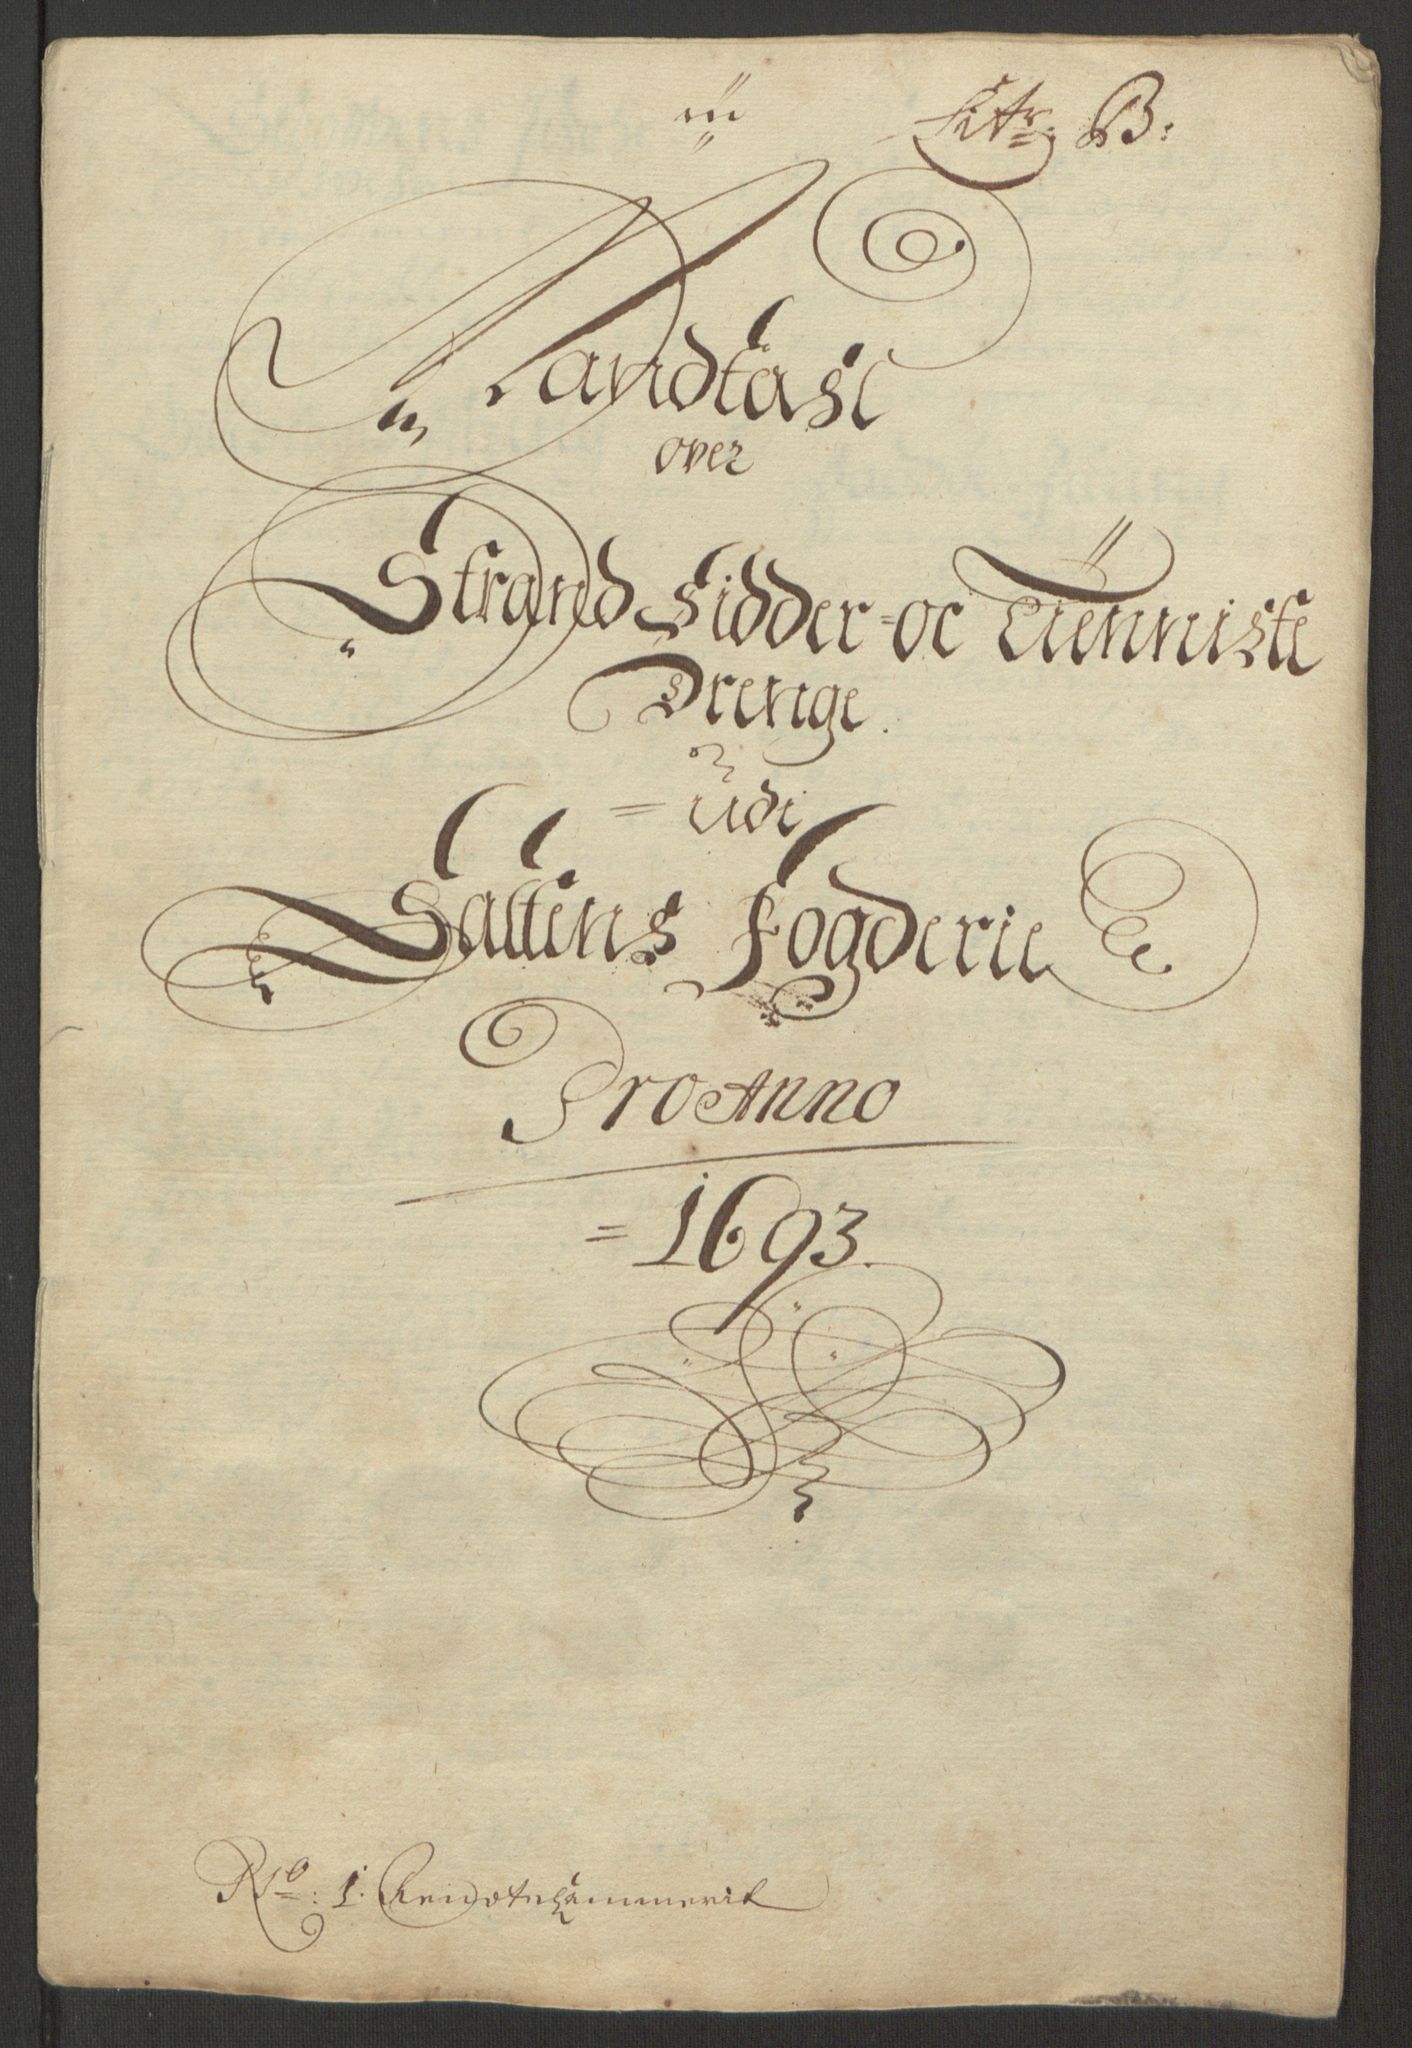 Litr. B:
Mandtahl
over
Strand Sidder = oc Tienniste
Drenge.
= udi
Saltens Fogderie
Pro Anno
= 1693.
No: 1.